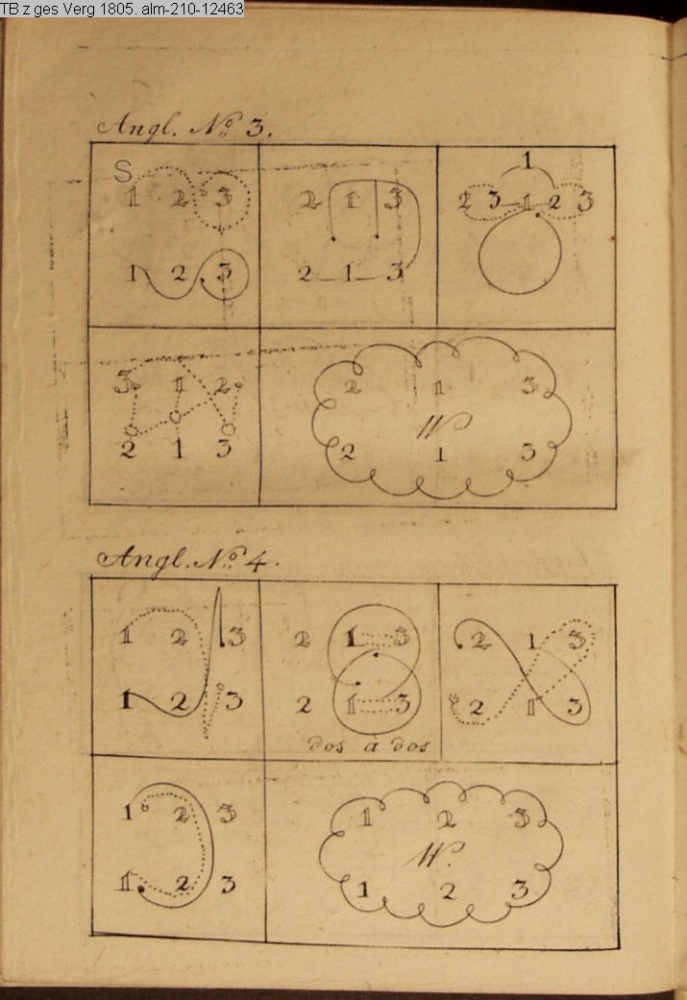 TB z ges Verg 1805. alm-210-12463
Angl. No. 3.
S
1 2 3
1 2 3
2 1 3
2 1 3
1
2 3 1 2 3
3 1 2
2 1 3
2 1 3
W
2 1 3
Angl. No. 4.
1 2 3
1 2 3
2 1 3
2 1 3
dos à dos
2 1 3
2 1 3
1 2 3
1 2 3
1 2 3
W.
1 2 3